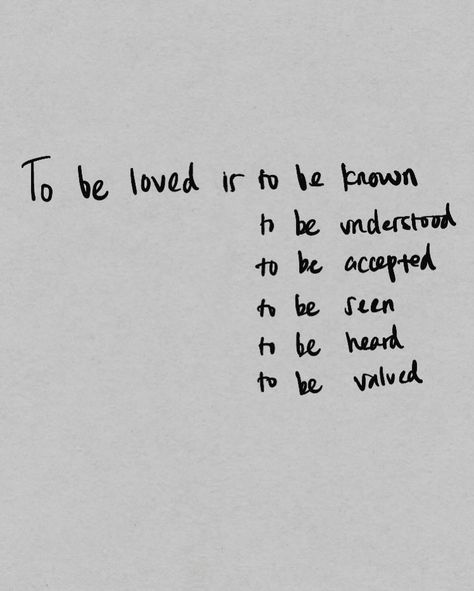 To be loved is to be known
to be understood
to be accepted
to be seen
to be heard
to be valued